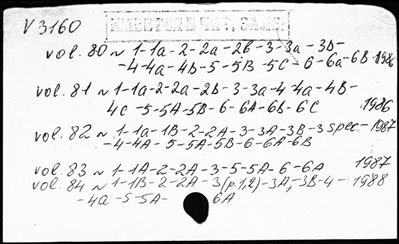 V 3160
ИМЕЕТСЯ В ЧИТ. ЗАЛЕ
vol. 80 ~ 1-1a-2-2a-2b-3-3a-3B-
-4-4a-4B-5-5B-5C-6-6a-6B-1986
vol. 81 ~ 1-1a-2-2a-2B-3-3a-4-4a-4B-
4C-5-5A-5B-6-6A-6B-6C 1986
vol. 82 ~ 1-1a-1B-2-2A-3-3A-3B-3 spec.-1987
-4-4A-5-5A-5B-6-6A-6B
vol. 83 ~ 1-1A-2-2A-3-5-5A-6-6A 1987
vol. 84 ~ 1-1B-2-2A-3(p.1,2)-3A,-3B-4-1988
-4a-5-5A- 6A